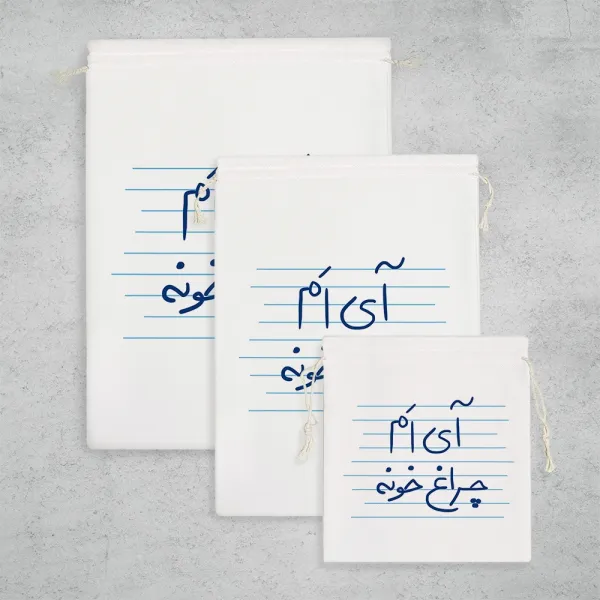 اَم
خونه
آی اَم
خونه
آی اَم
چراغ خونه